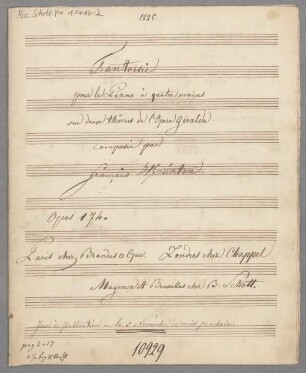 1225.
Fantaisie
pour le Piano à quatre mains
sur deux thêmes de l'Opera Giralda
composée par
François Hünten
Opus 174.
Paris chez Brandus & Cie. Londres chez Chappel
Mayence et Bruxelles chez B. Schott.
Jour de publication
10929